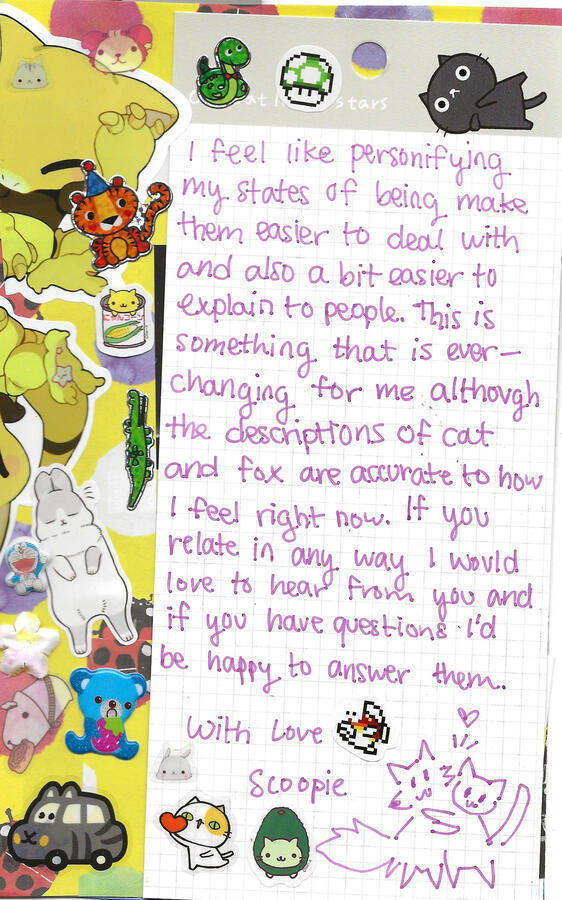 stars
I feel like personifying
my states of being make
them easier to deal with
and also a bit easier to
explain to people. This is
something that is ever-
changing for me although
the descriptions of cat
and fox are accurate to how
I feel right now. If you
relate in any way I would
love to hear from you and
if you have questions I'd
be happy to answer them.
With Love
Scoopie